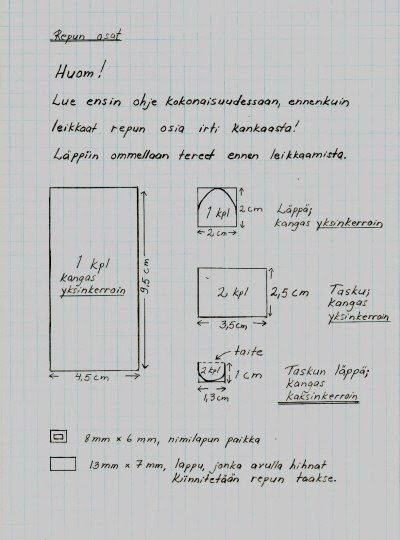 Repun osat
Huom!
Lue ensin ohje kokonaisuudessaan, ennenkuin
leikkaat repun osia irti kankaasta!
Läppiin ommellaan tereet ennen leikkaamista.
1 kpl
kangas
yksinkerroin
9,5 cm
4,5 cm
1 kpl
2 cm
2 cm
Läppä;
kangas yksinkerroin
2 kpl
2,5 cm
3,5cm
Tasku;
kangas
yksinkerroin
taite
2 kpl
1 cm
1,3 cm
Taskun läppä;
kangas
kaksinkerroin
8mm x 6 mm, nimilapun paikka
13mm x 7 mm, lappu, jonka avulla hihnat
kiinnitetään repun taakse.